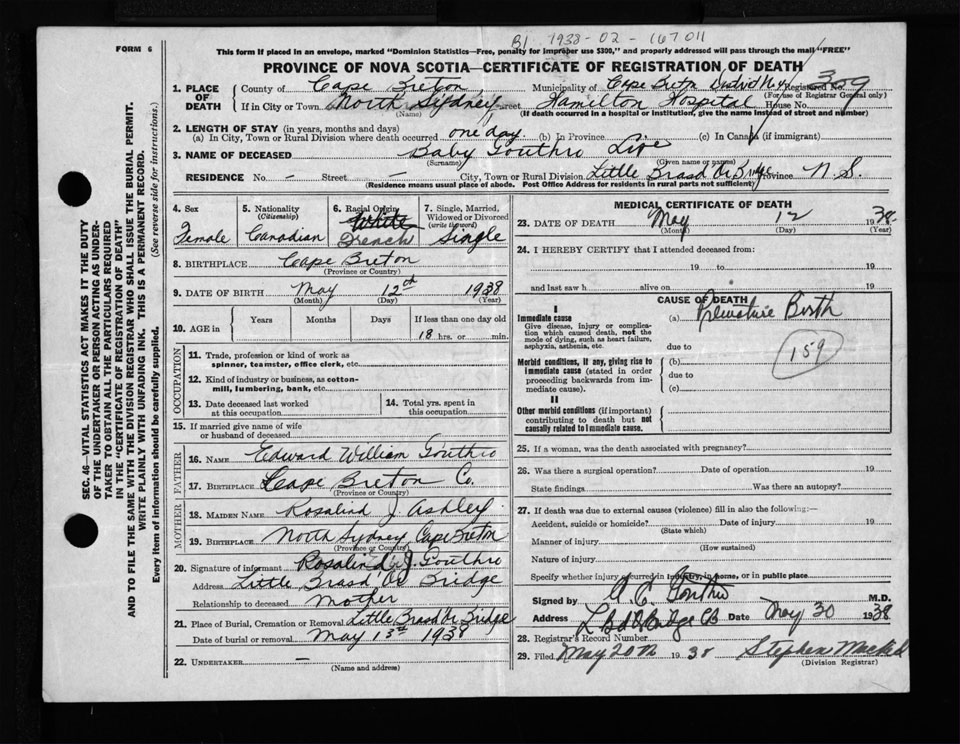 B1 1938-02-167011
FORM 6
This form if placed in an envelope, marked "Dominion Statistics—Free, penalty for improper use $300," and properly addressed will pass through the mail "FREE"
PROVINCE OF NOVA SCOTIA—CERTIFICATE OF REGISTRATION OF DEATH
1. PLACE OF DEATH
County of Cape Breton Municipality of Cape Breton Registered No. 309
(For use of Registrar General only)
If in City or Town North Sydney Street Hamilton Hospital House No.
(Name) (If death occurred in a hospital or institution, give the name instead of street and number)
2. LENGTH OF STAY (in years, months and days)
(a) In City, Town or Rural Division where death occurred one day (b) In Province (c) In Canada (if immigrant)
3. NAME OF DECEASED Baby Gouthro Live
(Surname) (Given name or names)
RESIDENCE No. – Street – City, Town or Rural Division Little Brasd'Or Bridge Province N. S.
(Residence means usual place of abode. Post Office Address for residents in rural parts not sufficient)
4. Sex
Female
5. Nationality
(Citizenship)
Canadian
6. Racial Origin
White
French
7. Single, Married, Widowed or Divorced
(write the word)
Single
8. BIRTHPLACE Cape Breton
(Province or Country)
9. DATE OF BIRTH May 12th 1938
(Month) (Day) (Year)
10. AGE in
Years Months Days If less than one day old
18 hrs. or min.
OCCUPATION
11. Trade, profession or kind of work as
spinner, teamster, office clerk, etc.
12. Kind of industry or business, as cotton-
mill, lumbering, bank, etc.
13. Date deceased last worked
at this occupation
14. Total yrs. spent in
this occupation
15. If married give name of wife
or husband of deceased
FATHER
16. NAME Edward William Gouthro
17. BIRTHPLACE Cape Breton Co.
(Province or Country)
MOTHER
18. MAIDEN NAME Rosalind J. Ashley
19. BIRTHPLACE North Sydney Cape Breton
(Province or Country)
20. Signature of informant Rosalind J. Gouthro
Address Little Brasd'Or Bridge
Relationship to deceased Mother
21. Place of Burial, Cremation or Removal Little Brasd'Or Bridge
Date of burial or removal May 13th 1938
22. UNDERTAKER –
(Name and address)
MEDICAL CERTIFICATE OF DEATH
23. DATE OF DEATH May 12 1938
(Month) (Day) (Year)
24. I HEREBY CERTIFY that I attended deceased from:
19 to 19
and last saw h alive on 19
CAUSE OF DEATH
I
Immediate cause
Give disease, injury or complica-
tion which caused death, not the
mode of dying, such as heart failure,
asphyxia, asthenia, etc.
(a) Premature Birth
due to
159
Morbid conditions, if any, giving rise to
immediate cause (stated in order
proceeding backwards from im-
mediate cause).
(b)
due to
(c)
II
Other morbid conditions (if important)
contributing to death but not
causally related to immediate cause.
25. If a woman, was the death associated with pregnancy?
26. Was there a surgical operation? Date of operation 19
State findings Was there an autopsy?
27. If death was due to external causes (violence) fill in also the following:—
Accident, suicide or homicide? Date of injury 19
(State which)
Manner of injury
(How sustained)
Nature of injury
Specify whether injury occurred in industry, in home, or in public place
Signed by M.D.
Address Date May 30 1938
28. Registrar's Record Number
29. Filed May 20th 1938 Stephen
(Division Registrar)
SEC. 46—VITAL STATISTICS ACT MAKES IT THE DUTY
OF THE UNDERTAKER OR PERSON ACTING AS UNDER-
TAKER TO OBTAIN ALL THE PARTICULARS REQUIRED
IN THE "CERTIFICATE OF REGISTRATION OF DEATH"
AND TO FILE THE SAME WITH THE DIVISION REGISTRAR WHO SHALL ISSUE THE BURIAL PERMIT.
WRITE PLAINLY WITH UNFADING INK. THIS IS A PERMANENT RECORD.
Every item of information should be carefully supplied. (See reverse side for instructions.)